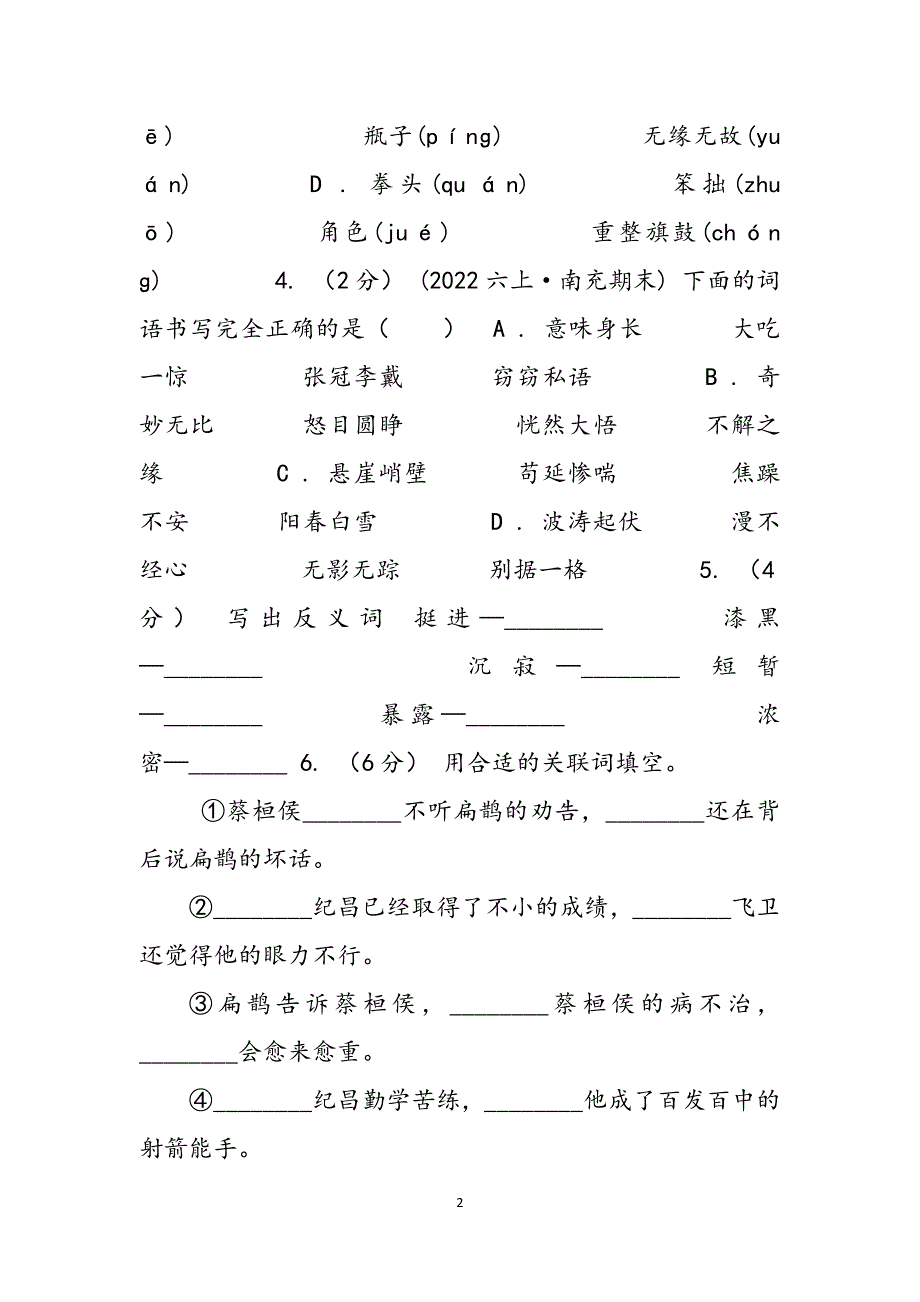 ē)　瓶子(píng)　无缘无故(yu
án)　D . 拳头(quán)　笨拙(zhu
ō)　角色(jué)　重整旗鼓(chón
g)　4. （2分） (2022六上·南充期末) 下面的词
语书写完全正确的是（　　） A . 意味身长　大吃
一惊　张冠李戴　窃窃私语　B . 奇
妙无比　怒目圆睁　恍然大悟　不解之
缘　C . 悬崖峭壁　苟延惨喘　焦躁
不安　阳春白雪　D . 波涛起伏　漫不
经心　无影无踪　别据一格　5. （4
分） 写出反义词 挺进—________　漆黑
—________　沉寂—________ 短暂
—________　暴露—________　浓
密—________ 6. （6分） 用合适的关联词填空。
①蔡桓侯________不听扁鹊的劝告，________还在背
后说扁鹊的坏话。
②________纪昌已经取得了不小的成绩，________飞卫
还觉得他的眼力不行。
③扁鹊告诉蔡桓侯，________蔡桓侯的病不治，
________会愈来愈重。
④________纪昌勤学苦练，________他成了百发百中的
射箭能手。
2